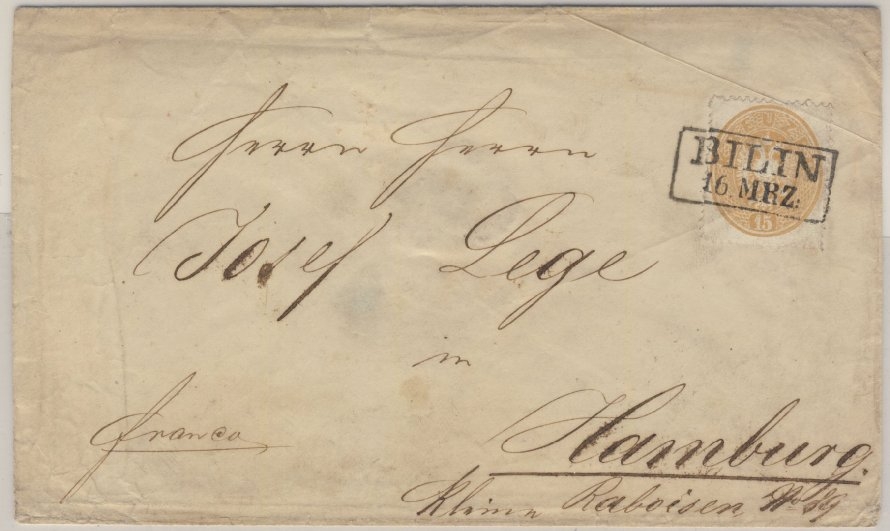 BILIN
16. MRZ.
15
Herrn Herrn
Josef Lege
in
Hamburg.
franco
Kleine Raboisen